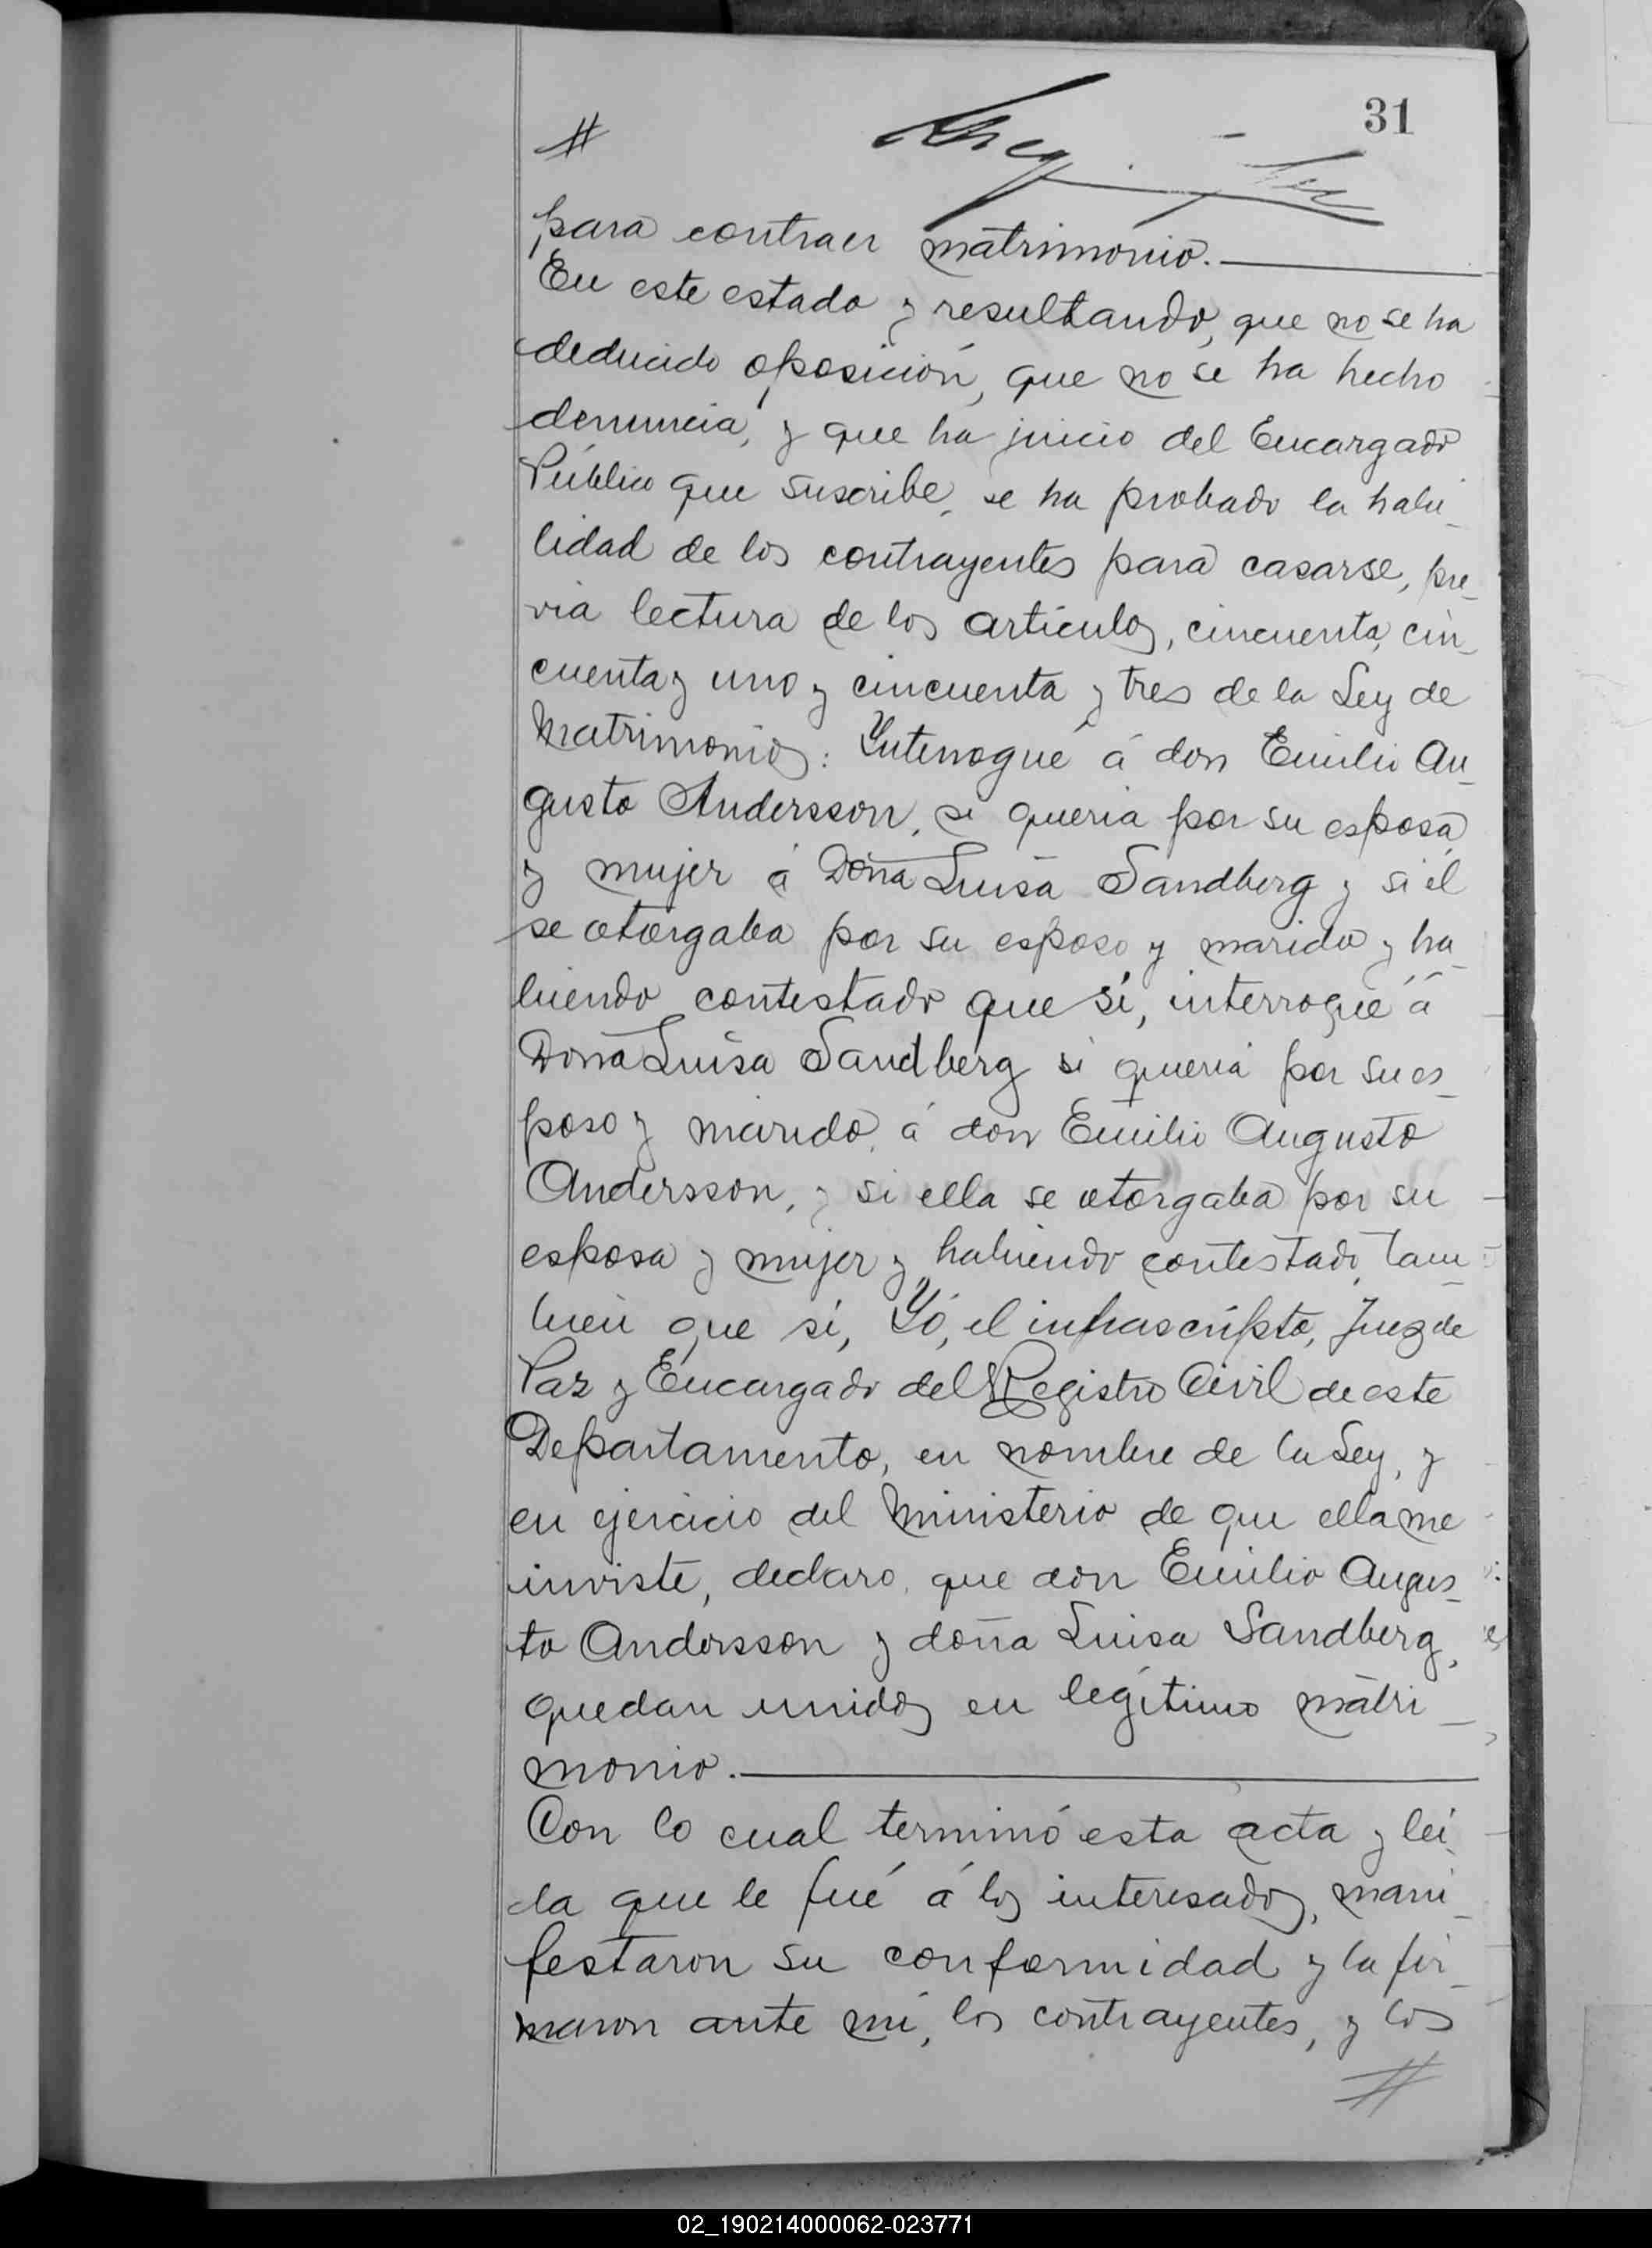 31
#
para contraer matrimonio.
En este estado y resultando, que no se ha
deducido oposición, que no se ha hecho
denuncia, y que ha juicio del Encargado
Público que suscribe, se ha probado la habi_
lidad de los contrayentes para casarse, pre_
via lectura de los artículos, cincuenta, cin_
cuenta y uno y cincuenta y tres de la Ley de
Matrimonios: Ynterrogué á don Emilio Au_
gusto Andersson, si queria por su esposa
y mujer á Doña Luisa Sandberg y si él
se otorgaba por su esposo y marido y ha_
biendo contestado que sí, interrogué á
Doña Luisa Sandberg si queria por su es_
poso y marido, á don Emilio Augusto
Andersson, y si ella se otorgaba por su
esposa y mujer y habiendo contestado, tam_
bien que sí, Yó, el infrascripto, Juez de
Paz y Encargado del Registro Civil de este
Departamento, en nombre de la Ley, y
en ejercicio del Ministerio de que ella me
inviste, declaro, que don Emilio Augus_
to Andersson y doña Luisa Sandberg,
quedan unidos en legítimo matri_
monio.
Con lo cual terminó esta acta y leí_
da que le fué á los interesados, mani_
festaron su conformidad y la fir_
maron ante mí, los contrayentes, y los
#
02_190214000062-023771